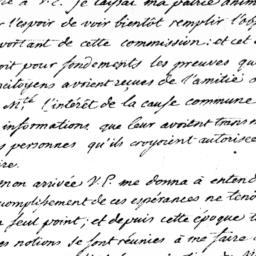 à V.E. Je laissai ma patrie anim
l'espoir de voir bientôt remplir l'ob
portant de cette commission: et cet
oit pour fondements les preuves qu
citoyens avoient reçues de l'amitié d
Mté l'intérêt de la cause commune
informations, que leur avoient trans
personnes qu'ils croyoient autorisée
ire.
mon arrivée V.E. me donna à entend
ccomplissement de ces espérances ne ten
seul point; et depuis cette époque t
es notions se sont réunies à me faire c